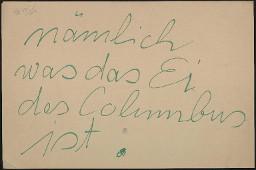 nämlich
was das Ei
des Columbus
ist.